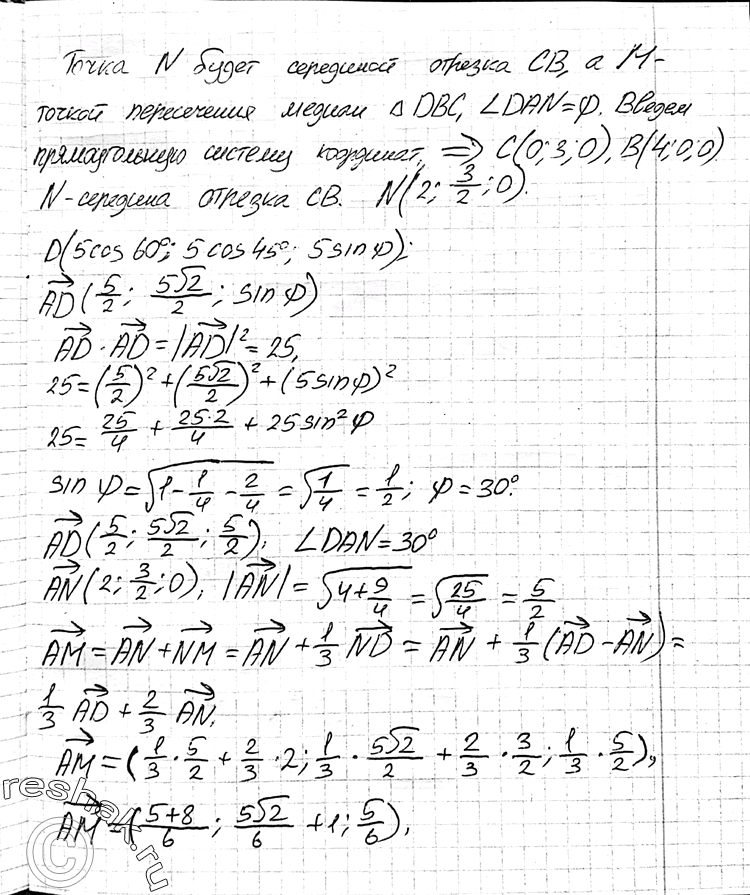 Точка N будет серединой отрезка CB, а M-
точкой пересечения медиан △ DBC, ∠DAN=φ. Введем
прямоугольную систему координат, ⇒ C(0;3;0), B(4;0;0)
N-середина отрезка CB. N(2; 3/2; 0).
D(5cos 60°; 5cos 45°; 5sin φ);
AD→(5/2; 5√2/2; sin φ)
AD→ · AD→ = |AD→|² = 25,
25=(5/2)²+(5√2/2)²+(5sin φ)²
25= 25/4 + 25·2/4 + 25sin² φ
sin φ=√(1-1/4-2/4) = √(1/4) = 1/2; φ=30°.
AD→(5/2; 5√2/2; 5/2), ∠DAN=30°
AN→(2; 3/2; 0), |AN→| = √(4+9/4) = √(25/4) = 5/2
AM→ = AN→ + NM→ = AN→ + 1/3 ND→ = AN→ + 1/3 (AD→ - AN→) =
1/3 AD→ + 2/3 AN→,
AM→ = (1/3 · 5/2 + 2/3 · 2; 1/3 · 5√2/2 + 2/3 · 3/2; 1/3 · 5/2),
AM→ = (5+8/6; 5√2/6 + 1; 5/6),
©reshak.ru